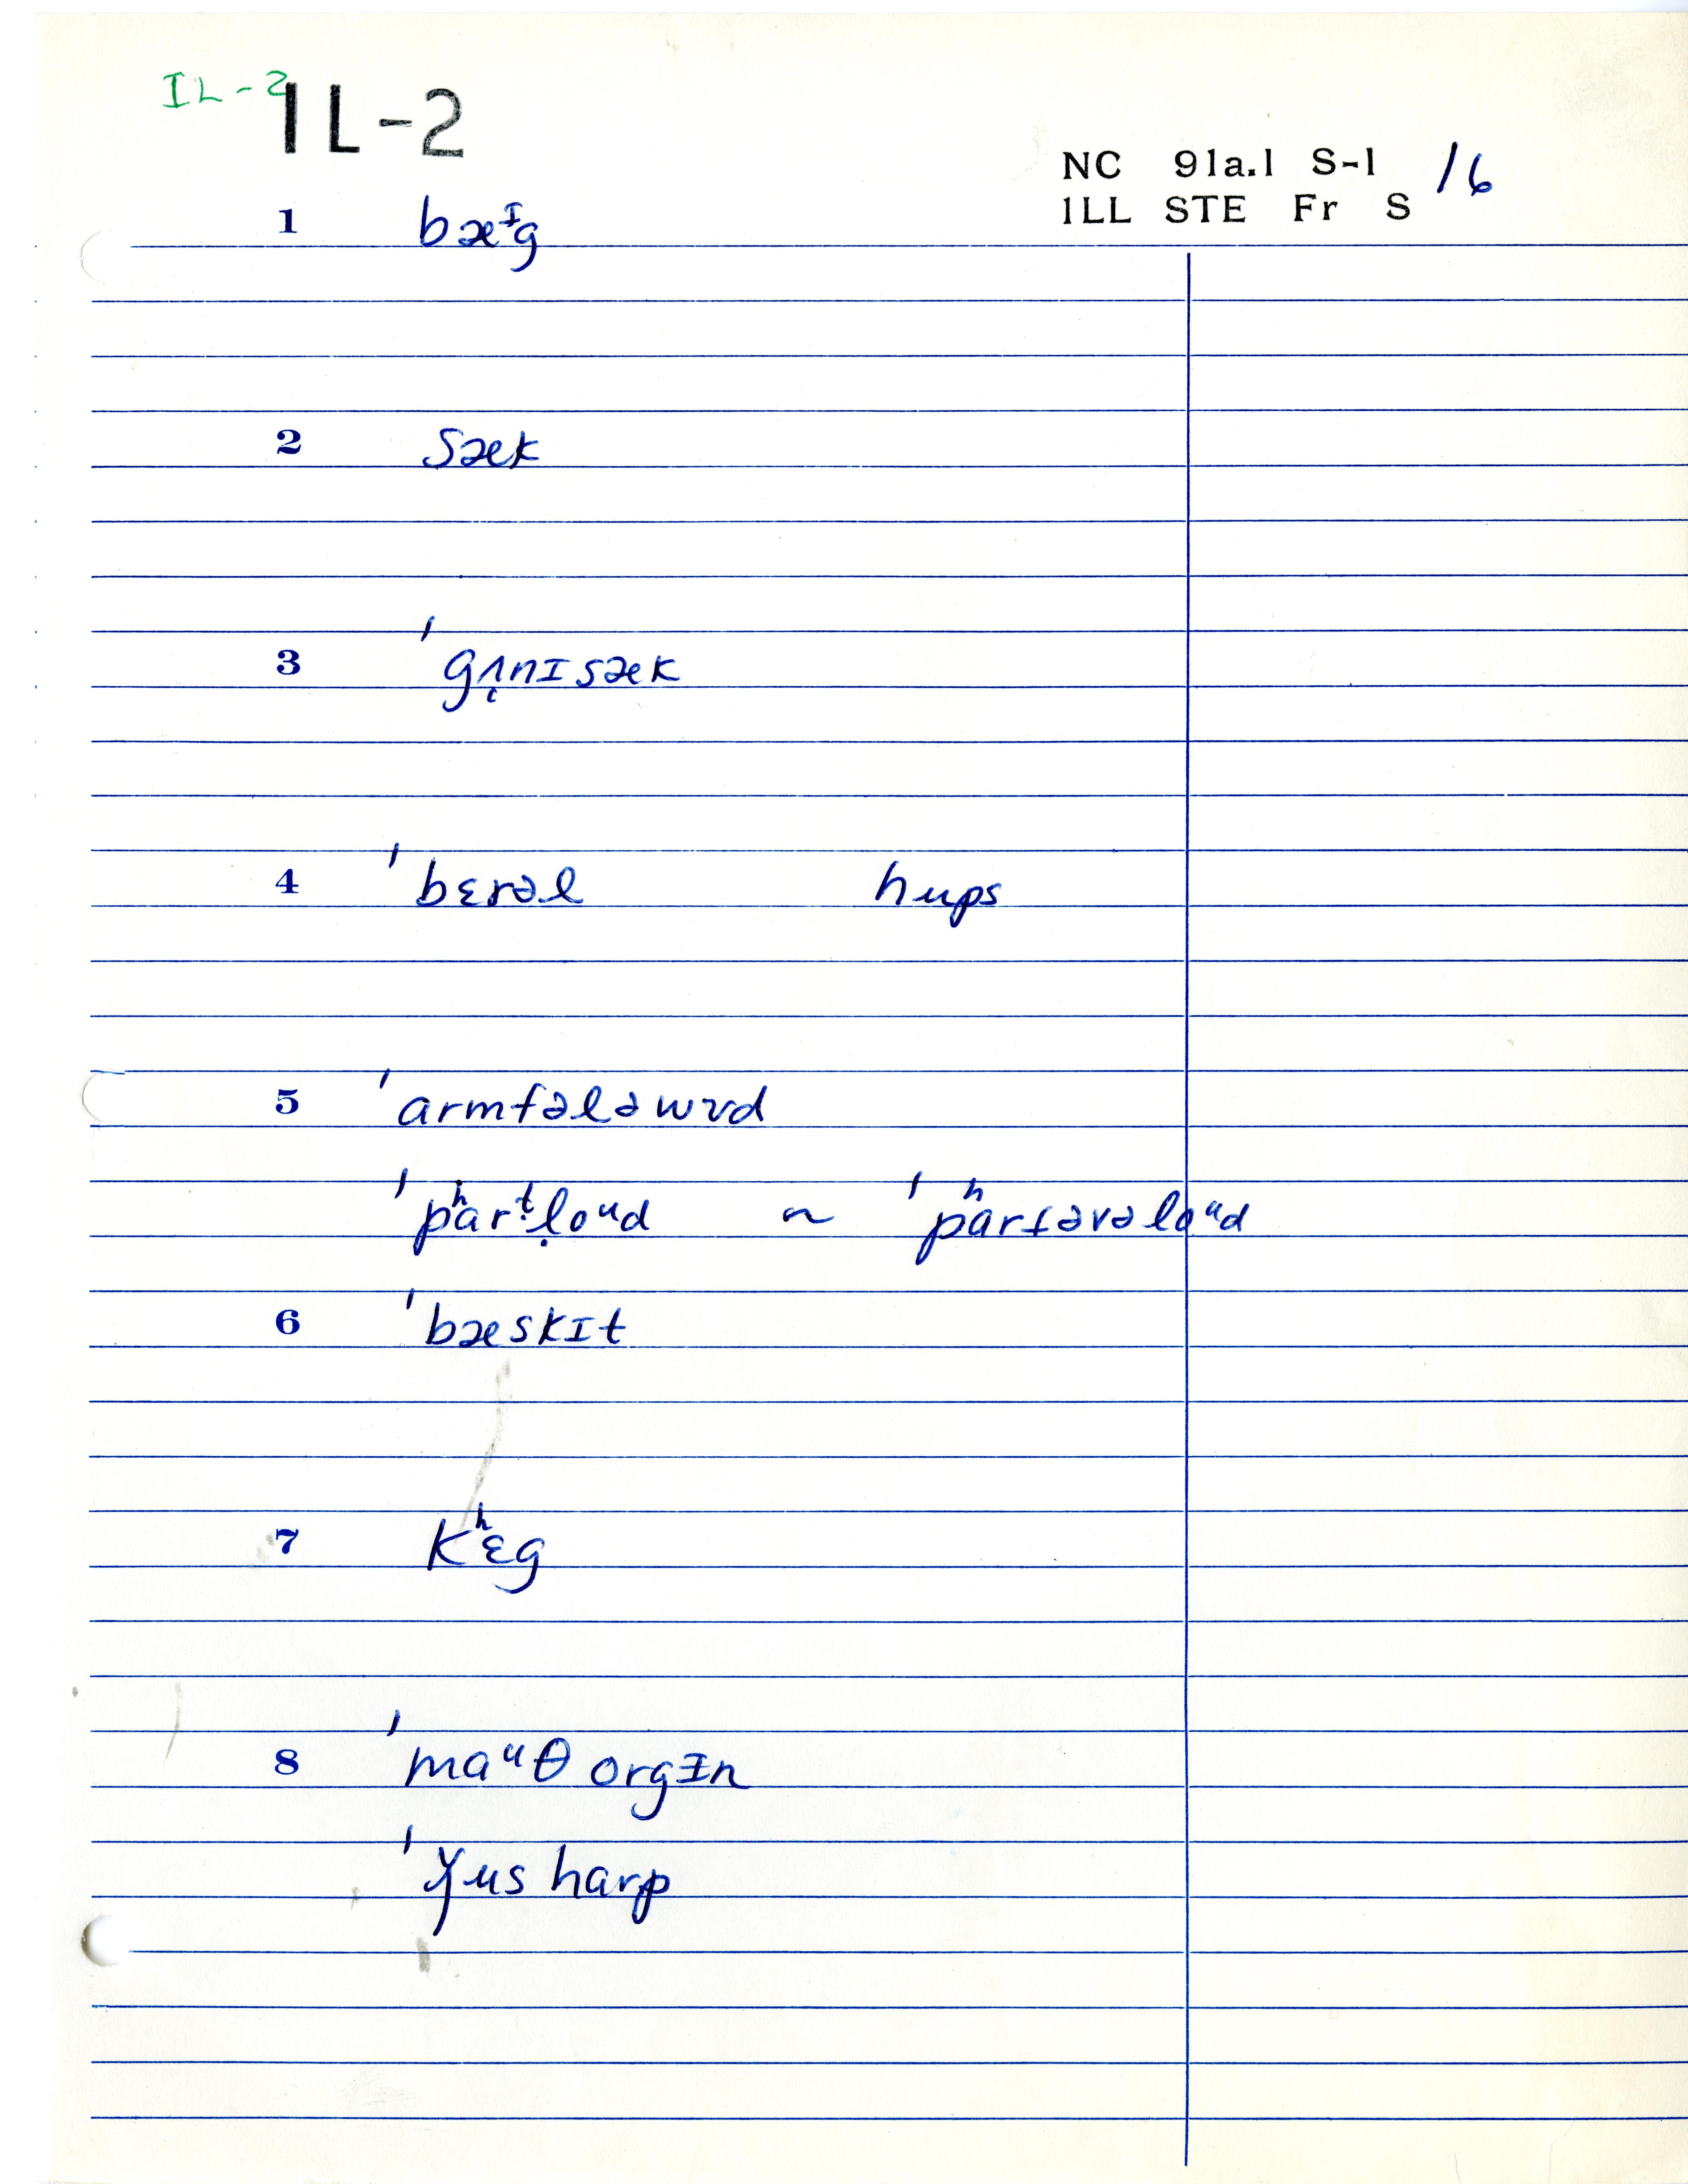 IL-2
IL-2
NC 91a.1 S-1 16
ILL STE Fr S
1 bæᶦg
2 sæk
3 ˈgʌ̜nɪsæk
4 ˈbɛrəl hups
5 ˈarmfələwʊd
ˈpʰarᵗl̩oᵘd ~ ˈpʰarʃəvəloᵘd
6 ˈbæskɪt
7 kʰɛg
8 ˈmaᵘθ orgɪn
ˈǰus harp